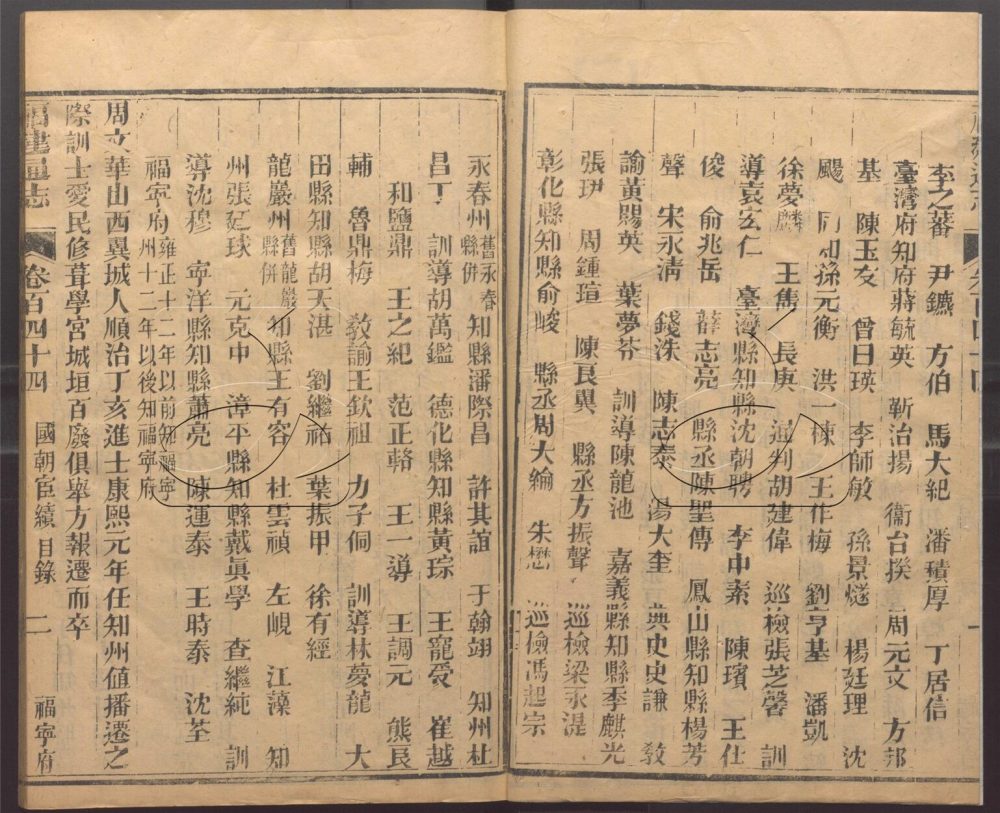 李之蕃 尹鑣 方伯 馬大紀 潘積厚 丁居信
臺灣府知府蔣毓英 靳治揚 衞台揆 周元文 方邦
基 陳玉友 曾曰瑛 李師敏 孫景燧 楊廷理 沈
颺 同知孫元衡 洪一棟 王作梅 劉亨基 潘凱
徐夢麟 王雋 長庚 通判胡建偉 巡檢張芝馨 訓
導袁宏仁 臺灣縣知縣沈朝聘 李中素 陳璸 王仕
俊 俞兆岳 薛志亮 縣丞陳聖傳 鳳山縣知縣楊芳
聲 宋永清 錢洙 陳志泰 湯大奎 典史史謙 敎
諭黃賜英 葉夢苓 訓導陳龍池 嘉義縣知縣李麒光
張㺬 周鍾瑄 陳良與 縣丞方振聲 巡檢梁永湜
彰化縣知縣俞峻 縣丞周大綸 朱懋 巡檢馮起宗
永春州舊永春縣併 知縣潘際昌 許其誼 于翰翊 知州杜
昌丁 訓導胡萬鑑 德化縣知縣黃琮 王寵受 崔越
和鹽鼎 王之紀 范正輅 王一導 王調元 熊良
輔 魯鼎梅 敎諭王欽祖 力子侗 訓導林夢龍 大
田縣知縣胡天湛 劉繼祐 葉振甲 徐有經
龍巖州舊龍巖縣併 知縣王有容 杜雲禎 左峴 江藻 知
州張廷球 元克中 漳平縣知縣戴眞學 查繼純 訓
導沈穆 寧洋縣知縣蕭亮 陳運泰 王時泰 沈荃
福寧府雍正十二年以前知福寧州十二年以後知福寧府
周文華山西翼城人順治丁亥進士康熙元年任知州值播遷之
際訓士愛民修葺學宮城垣百廢俱舉方報遷而卒
福建通志 卷百四十四 國朝宦績 目錄 二 福寧府